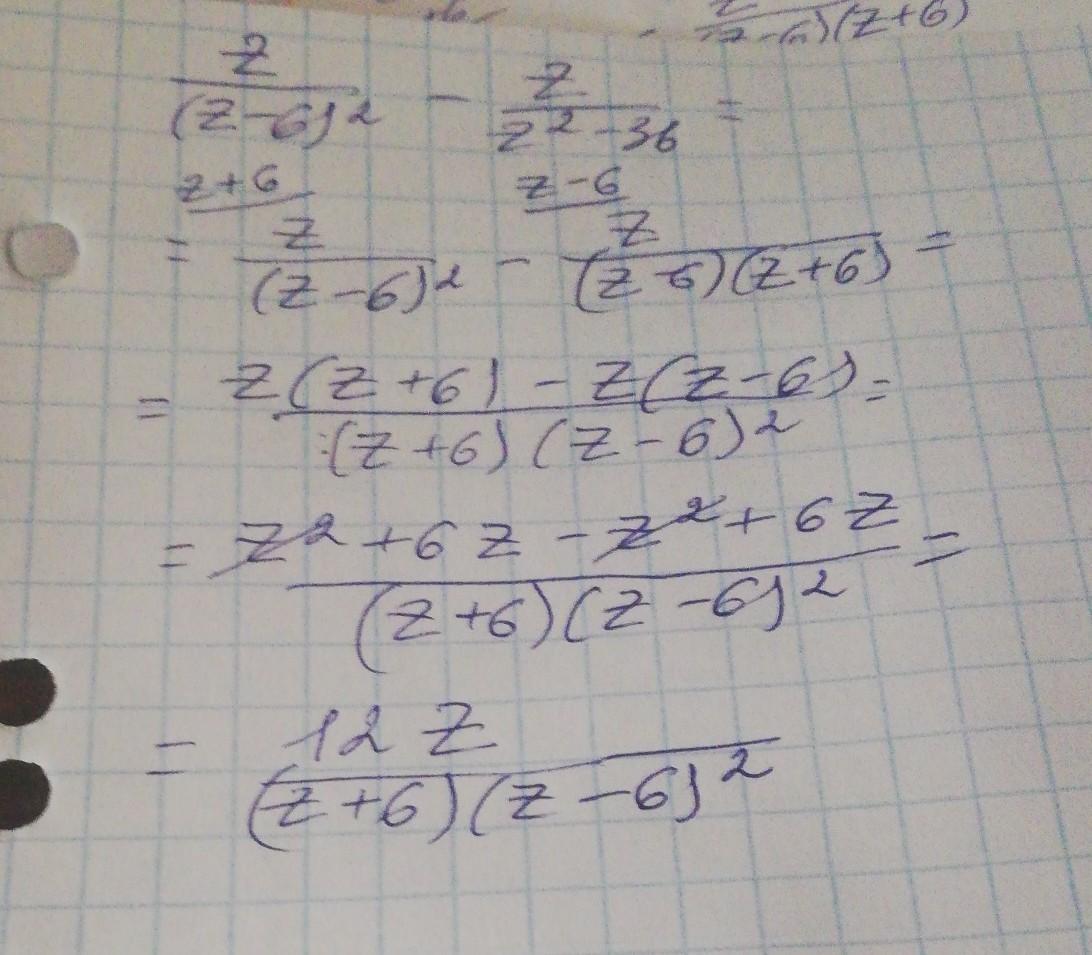 (z+6)
z/(z-6)² - z/(z²-36) =
z+6 z-6
= z/(z-6)² - z/((z-6)(z+6)) =
= (z(z+6) - z(z-6))/((z+6)(z-6)²) =
= (z²+6z - z²+6z)/((z+6)(z-6)²) =
= 12z/((z+6)(z-6)²)